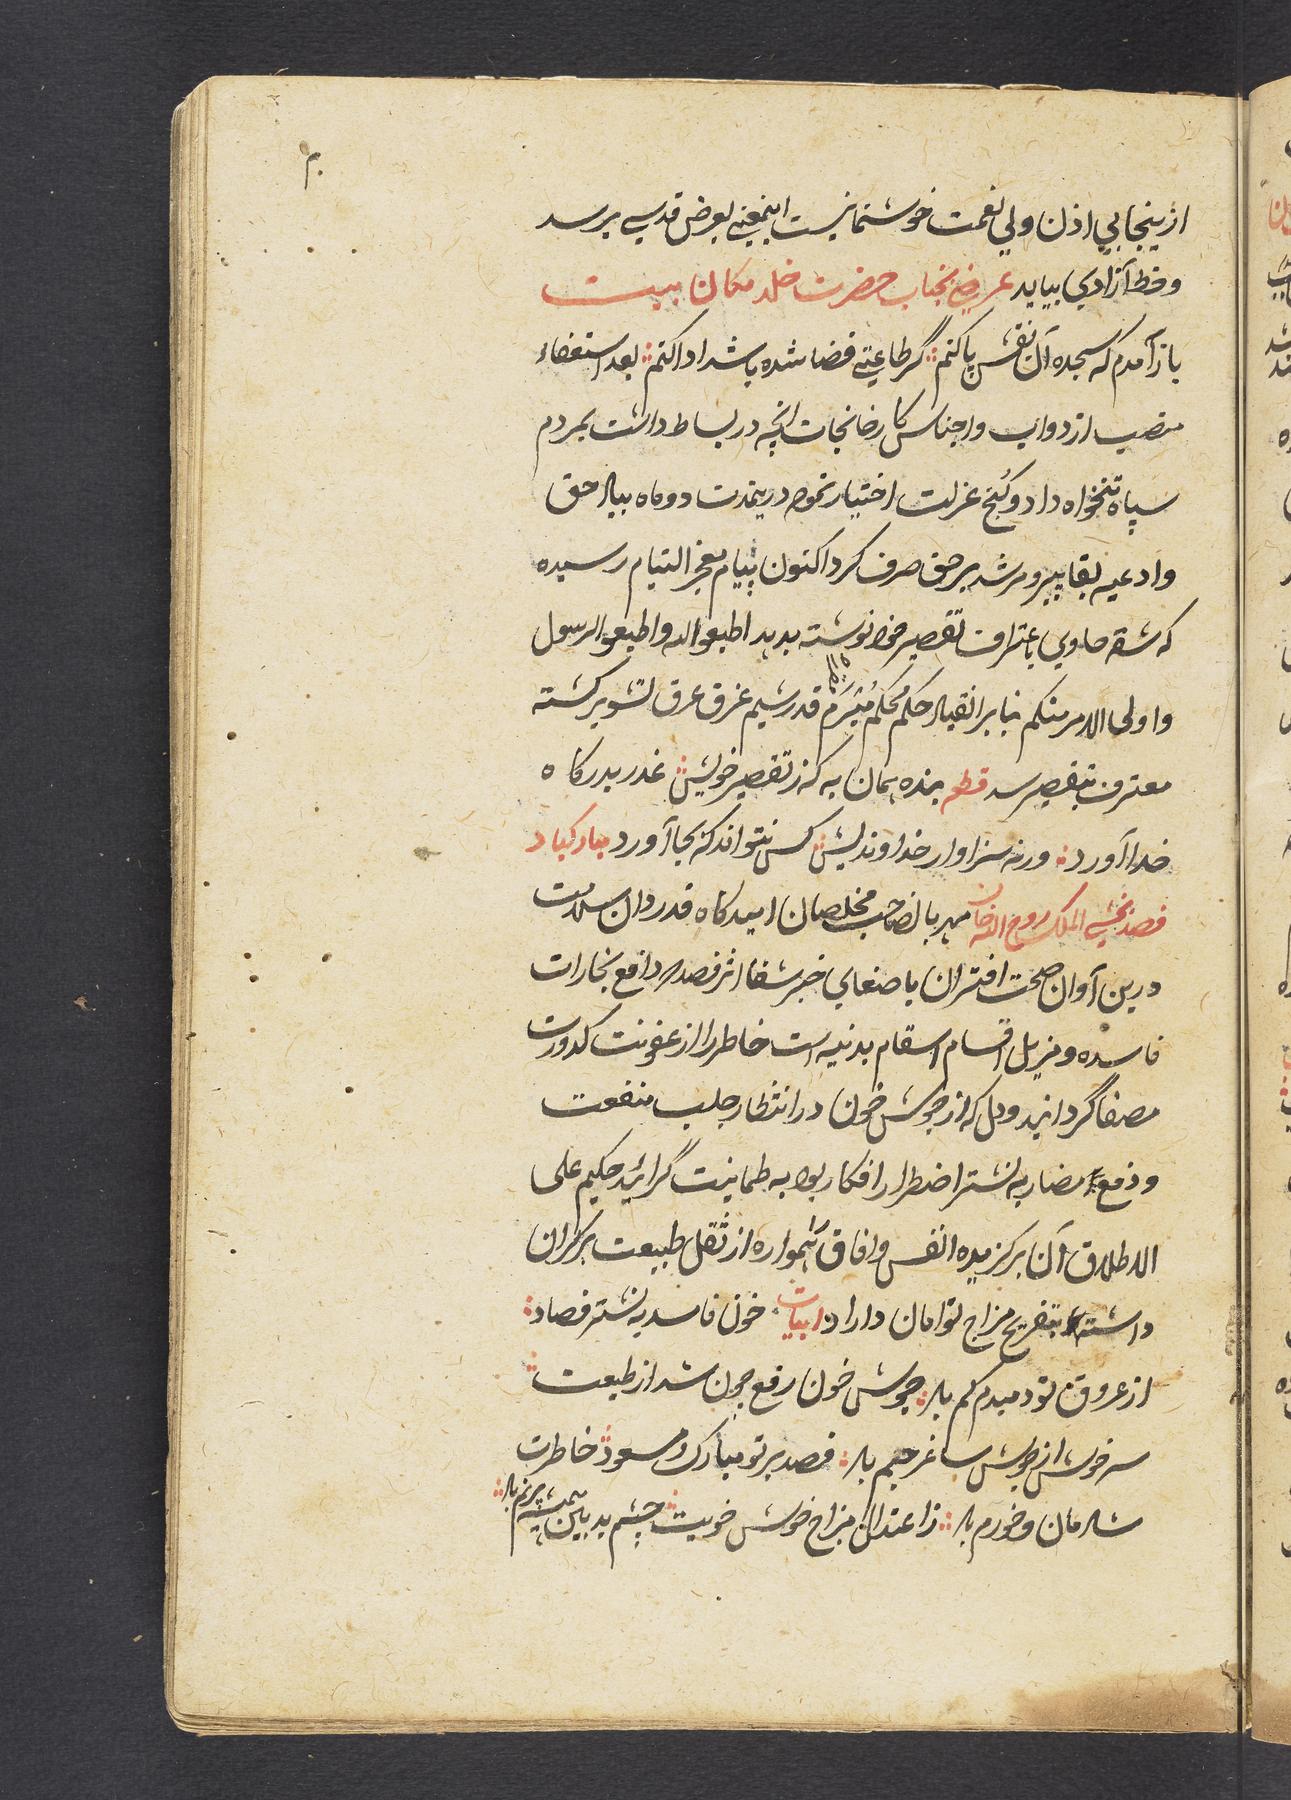 ازینجا بی اذن ولی نعمت خوشنما نیست اینمعنی بعرض قدسی برسد
و خط آزادی بیاید عرضی بجناب حضرت خلد مکان بیت
باز آمدم که سجده آن نقش پا کنم گر طاعتی قضا شده باشد ادا کنم بعد استعفاء
منصب از دواب و اجناس کارخانجات آنچه در بساط داشت بمردم
سپاه تنخواه داد و کنج عزلت اختیار نموده درینمدت دو ماه بیاد حق
و ادعیه بقا پیر و مرشد برحق صرف کرد اکنون پیام معجز التیام رسیده
که شقه حاوی باعتراف تقصیر خود نوشته بدهد اطیعو الله و اطیعو الرسول
و اولی الامر منکم بنا بر انقیاد حکم محکم مبرم قدر شیم غرق عرق تشویر گشته
معترف بتقصیر شد قطعه بنده همان به که ز تقصیر خویش عذر بدرگاه
خدا آورد ورنه سزاوار خداوندیش کس نتواند که بجا آورد مبارکباد
فصد بخشی الملک روح الله خان مهربان صاحب مخلصان امیدگاه قدردان سلامت
درین آوان صحت اقتران باصغای خبر شفا اثر فصد که دافع بخارات
فاسده و مزیل اقسام اسقام بدنیه است خاطر را از عفونت کدورت
مصفا گردانید و دل که از جوش خون در انتظار جلب منفعت
و دفع مضار به نشتر اضطرار افکار بود به طمانینت گرائید حکیم علی
الاطلاق آن برگزیده انفس و آفاق را همواره از ثقل طبیعت برکران
داشته بتفریح مزاج توامان داراد ابیات خون فاسد به نشتر فصاد
از عروق تو دمبدم کم باد جوش خون رفع چون شد از طبعت
سر خوش از جوش ساغر جم باد فصد بر تو مبارک و مسعود خاطرت
شادمان و خورم باد ز اعتدال مزاج خوش خویت چشم بدبین همیشه پر نم باد